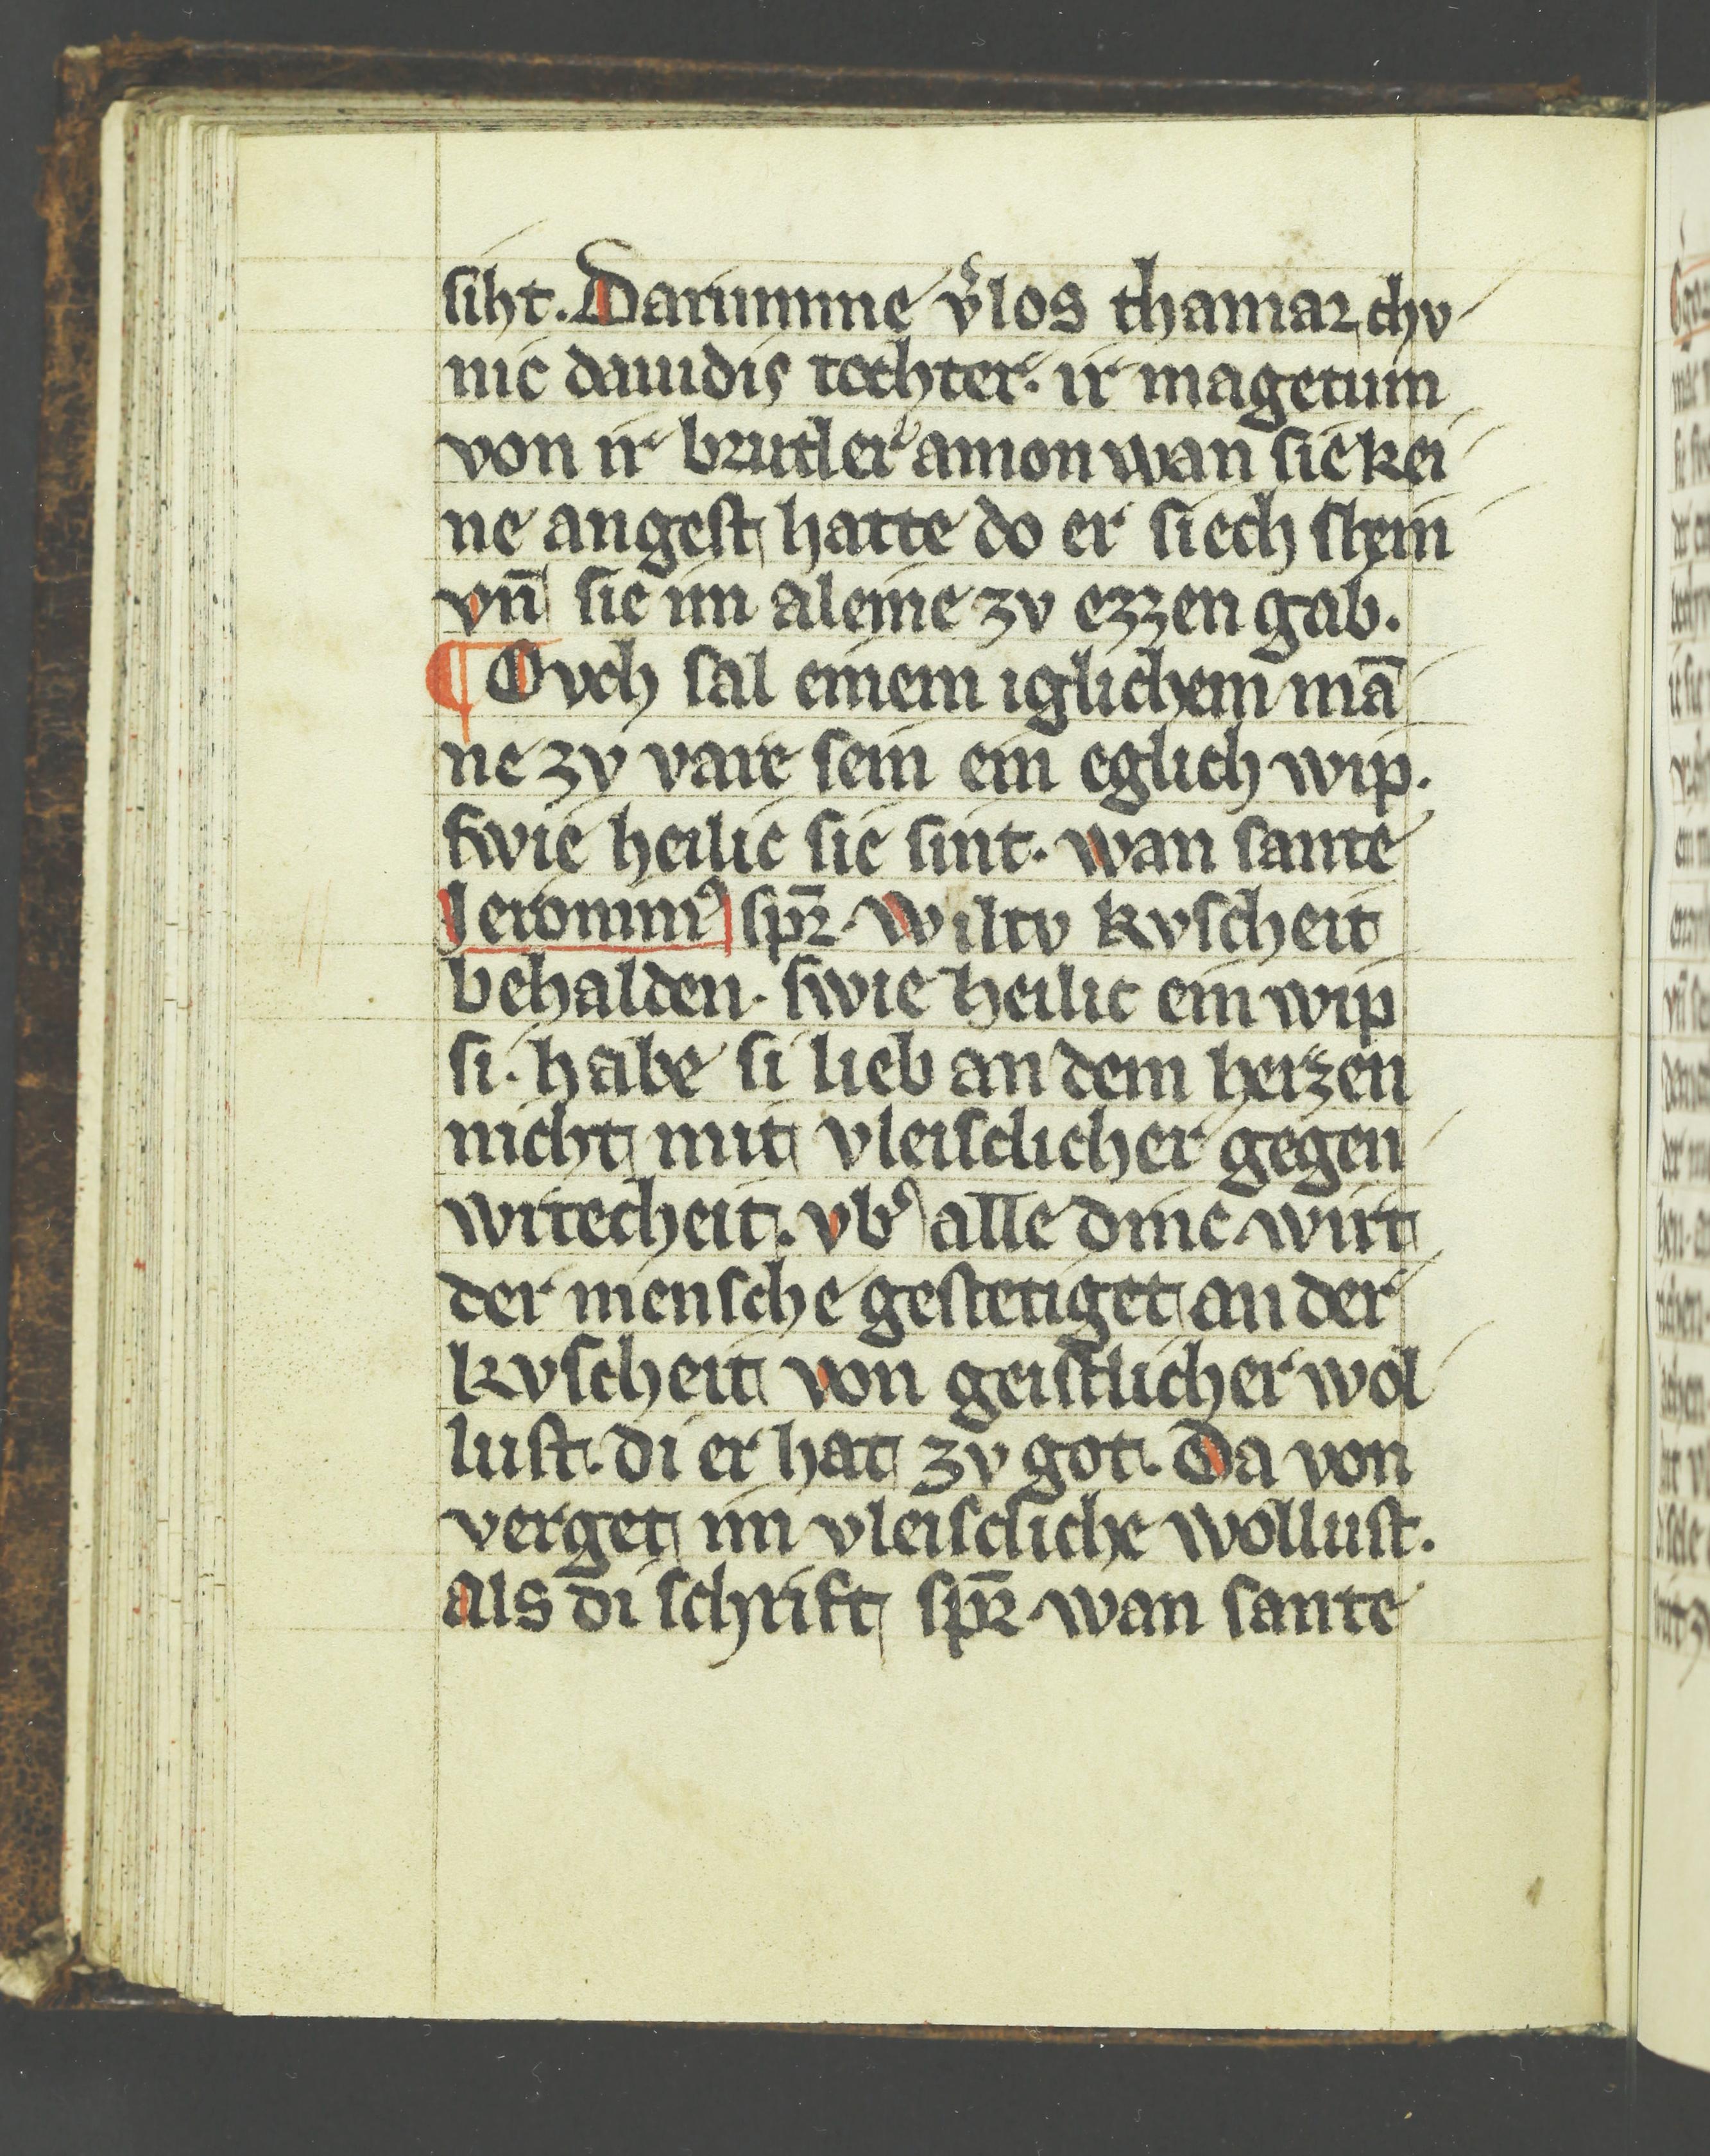 siht. Darumme v̾los thamar chv
nic dauidis tochter. ir magetum
von ir bruder amon wan sie kei
ne angest hatte do er siech schein
vn̄ sie im aleine zv ezzen gab.
¶ Ovch sal einem iglichem mā
ne zv vare sein ein eglich wip.
swie heilic sie sint. wan sante
Jeronimꝰ spr̄. Wiltv kvscheit
behalden. swie heilic ein wip
si. habe si lieb an dem herzen
nicht mit vleisclicher gegen
wrtecheit. vb᾽ alle dinc wirt
der mensche gestetiget an der
kvscheit von geistlicher wol
lust. di er hat zv got. Da von
verget im vleiscliche wollust.
als di schrift spr̄. wan sante